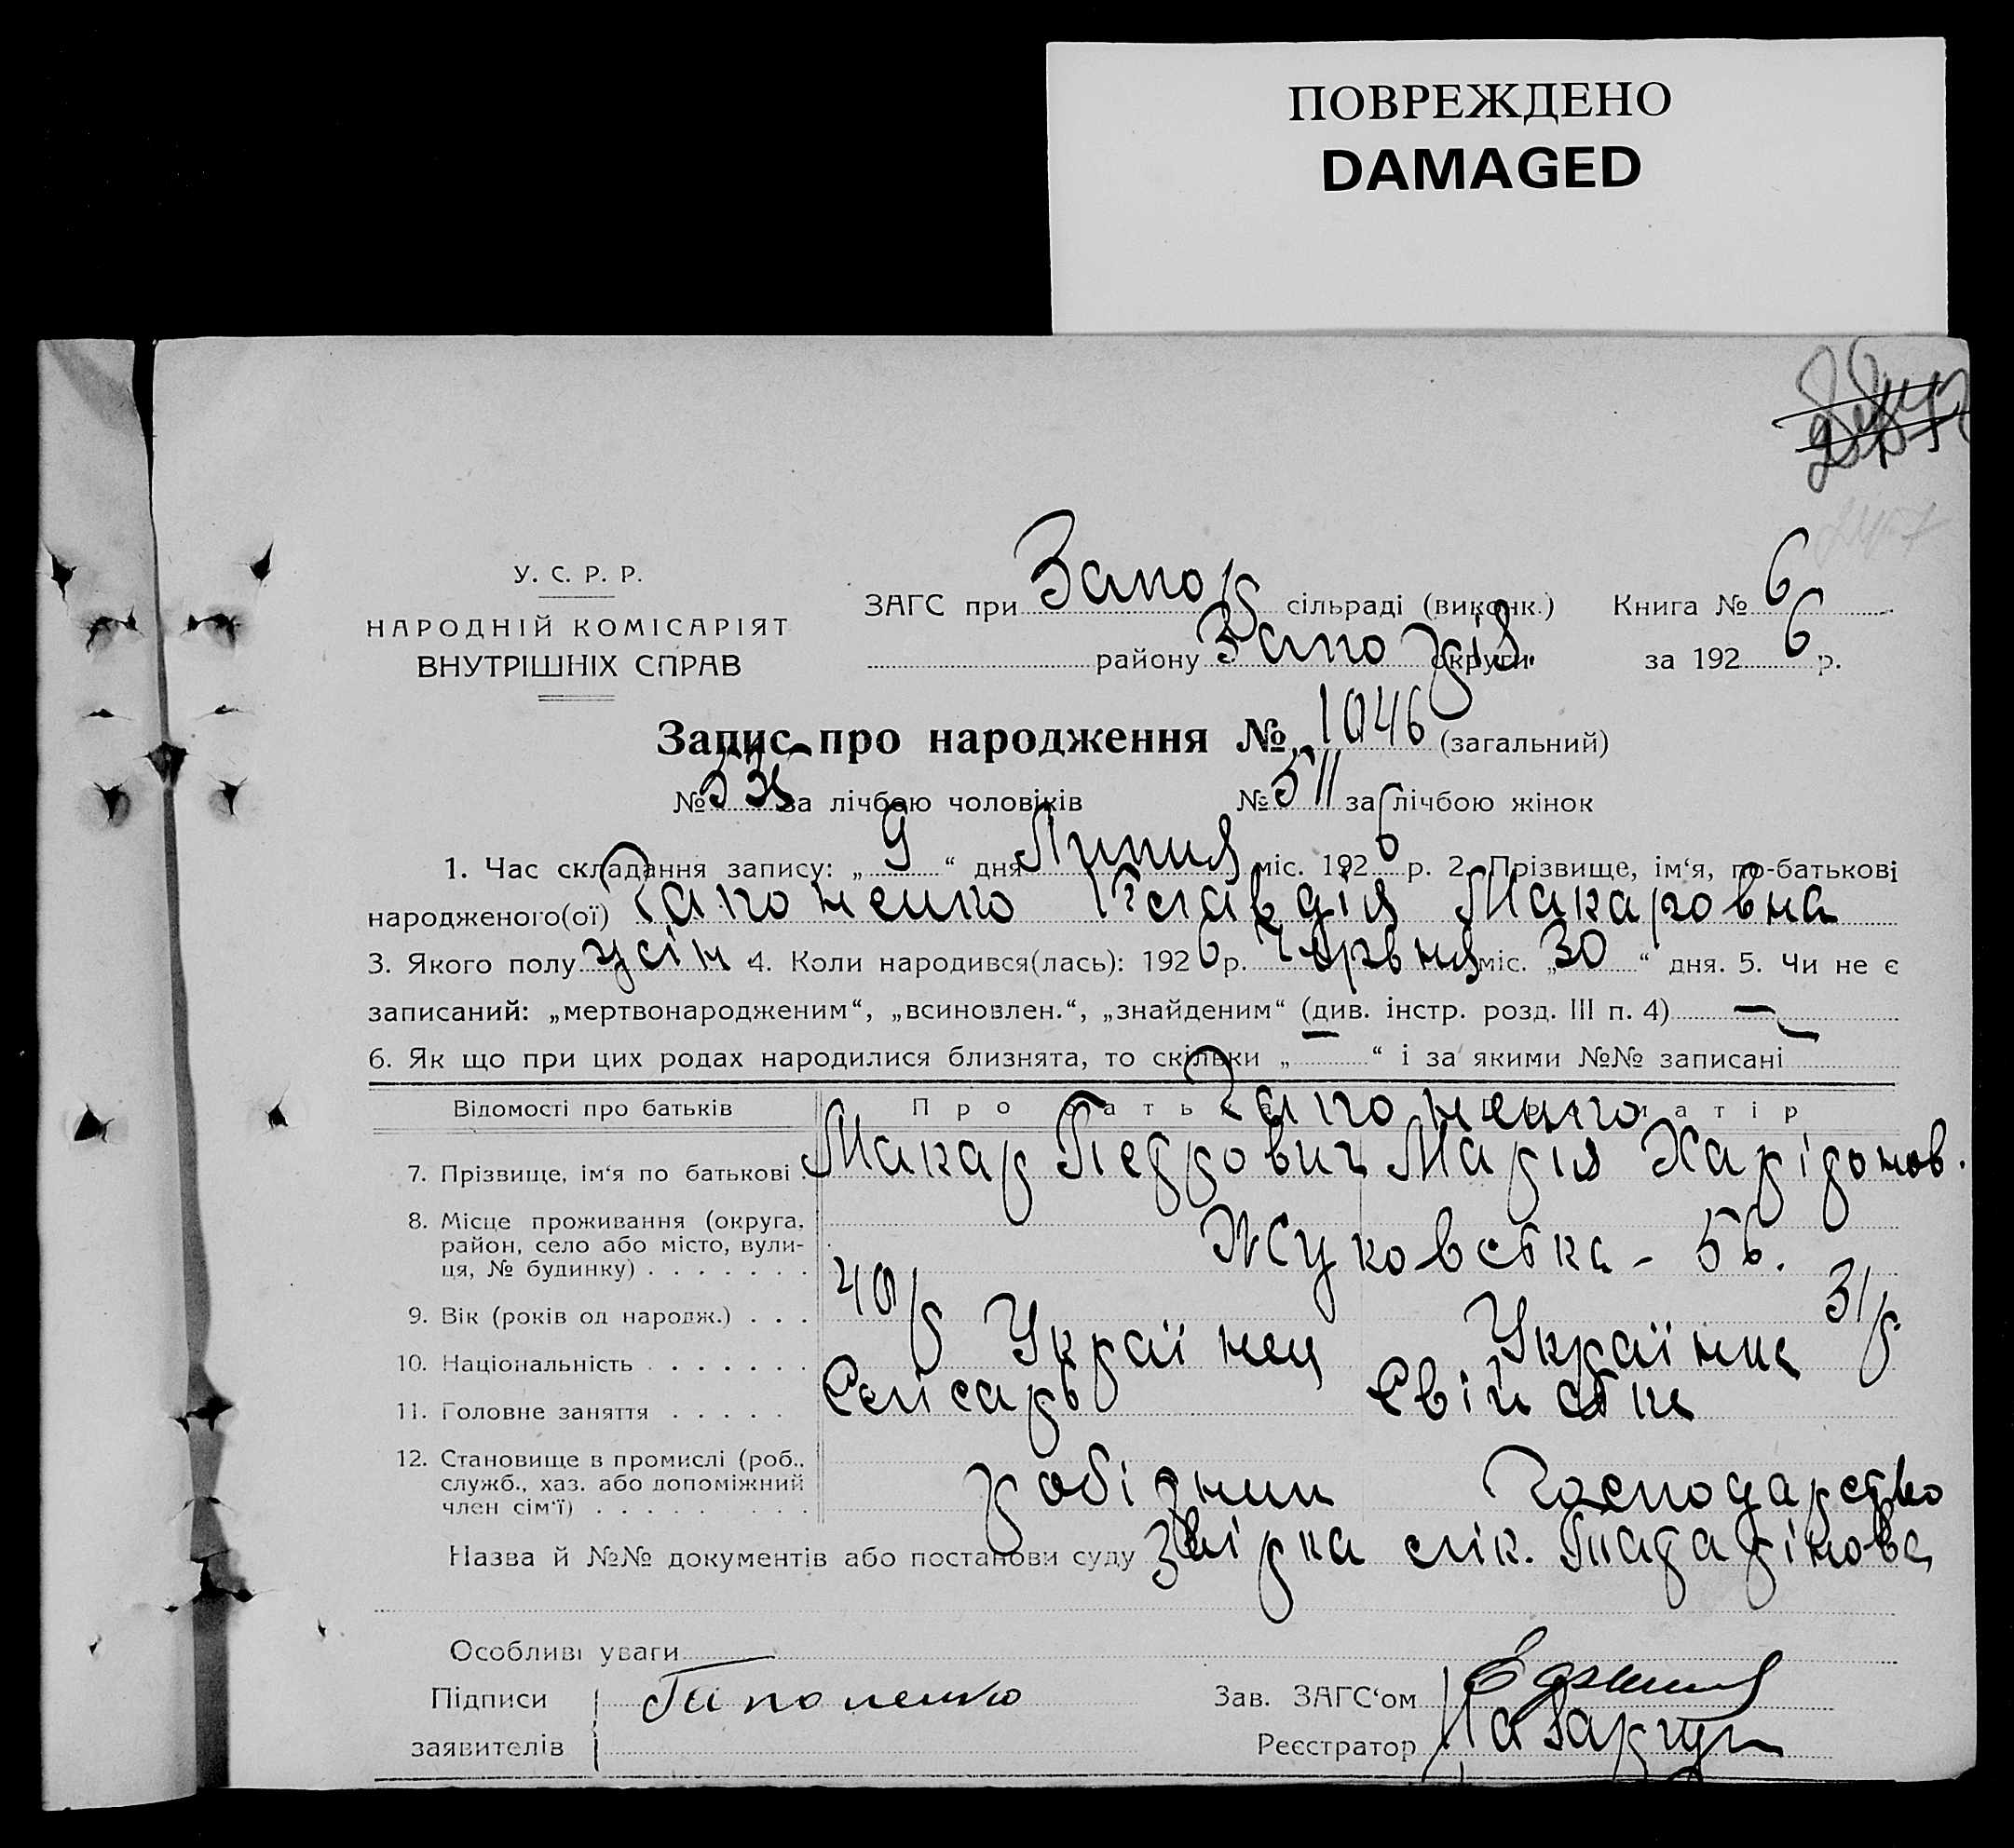 ПОВРЕЖДЕНО
DAMAGED
У. С. Р. Р.
НАРОДНІЙ КОМІСАРІЯТ
ВНУТРІШНІХ СПРАВ
ЗАГС при Запор сільраді (виконк.) Книга № 6
району Запоріз. округи за 192 6 р.
Запис про народження № 1046 (загальний)
№ за лічбою чоловіків № 511 за лічбою жінок
1. Час складання запису: „ 9 “ дня Липня міс. 192 6 р. 2. Прізвище, ім‘я, по-батькові
народженого(ої) Гапоненко Клавдія Макаровна
3. Якого полу жін 4. Коли народився(лась): 192 6 р. Червня міс. „ 30 “ дня. 5. Чи не є
записаний: „мертвонародженим“, „всиновлен.“, „знайденим“ (див. інстр. розд. III п. 4) —
6. Як що при цих родах народилися близнята, то скільки „ — “ і за якими №№ записані —
Відомості про батьків Про батька Про матір
Гапоненко
7. Прізвище, ім‘я по батькові Макар Петрович Марія Харітонов.
8. Місце проживання (округа, район, село або місто, вулиця, № будинку) Жуковська - 56.
9. Вік (років од народж.) 40 р 31 р.
10. Національність Українец Українка
11. Головне заняття Слісарь Свійська
12. Становище в промислі (роб., служб., хаз. або допоміжний член сім‘ї) робітник Господарство
Назва й №№ документів або постанови суду
Особливі уваги
Підписи Гапоненко Зав. ЗАГС‘ом
заявителів Реєстратор